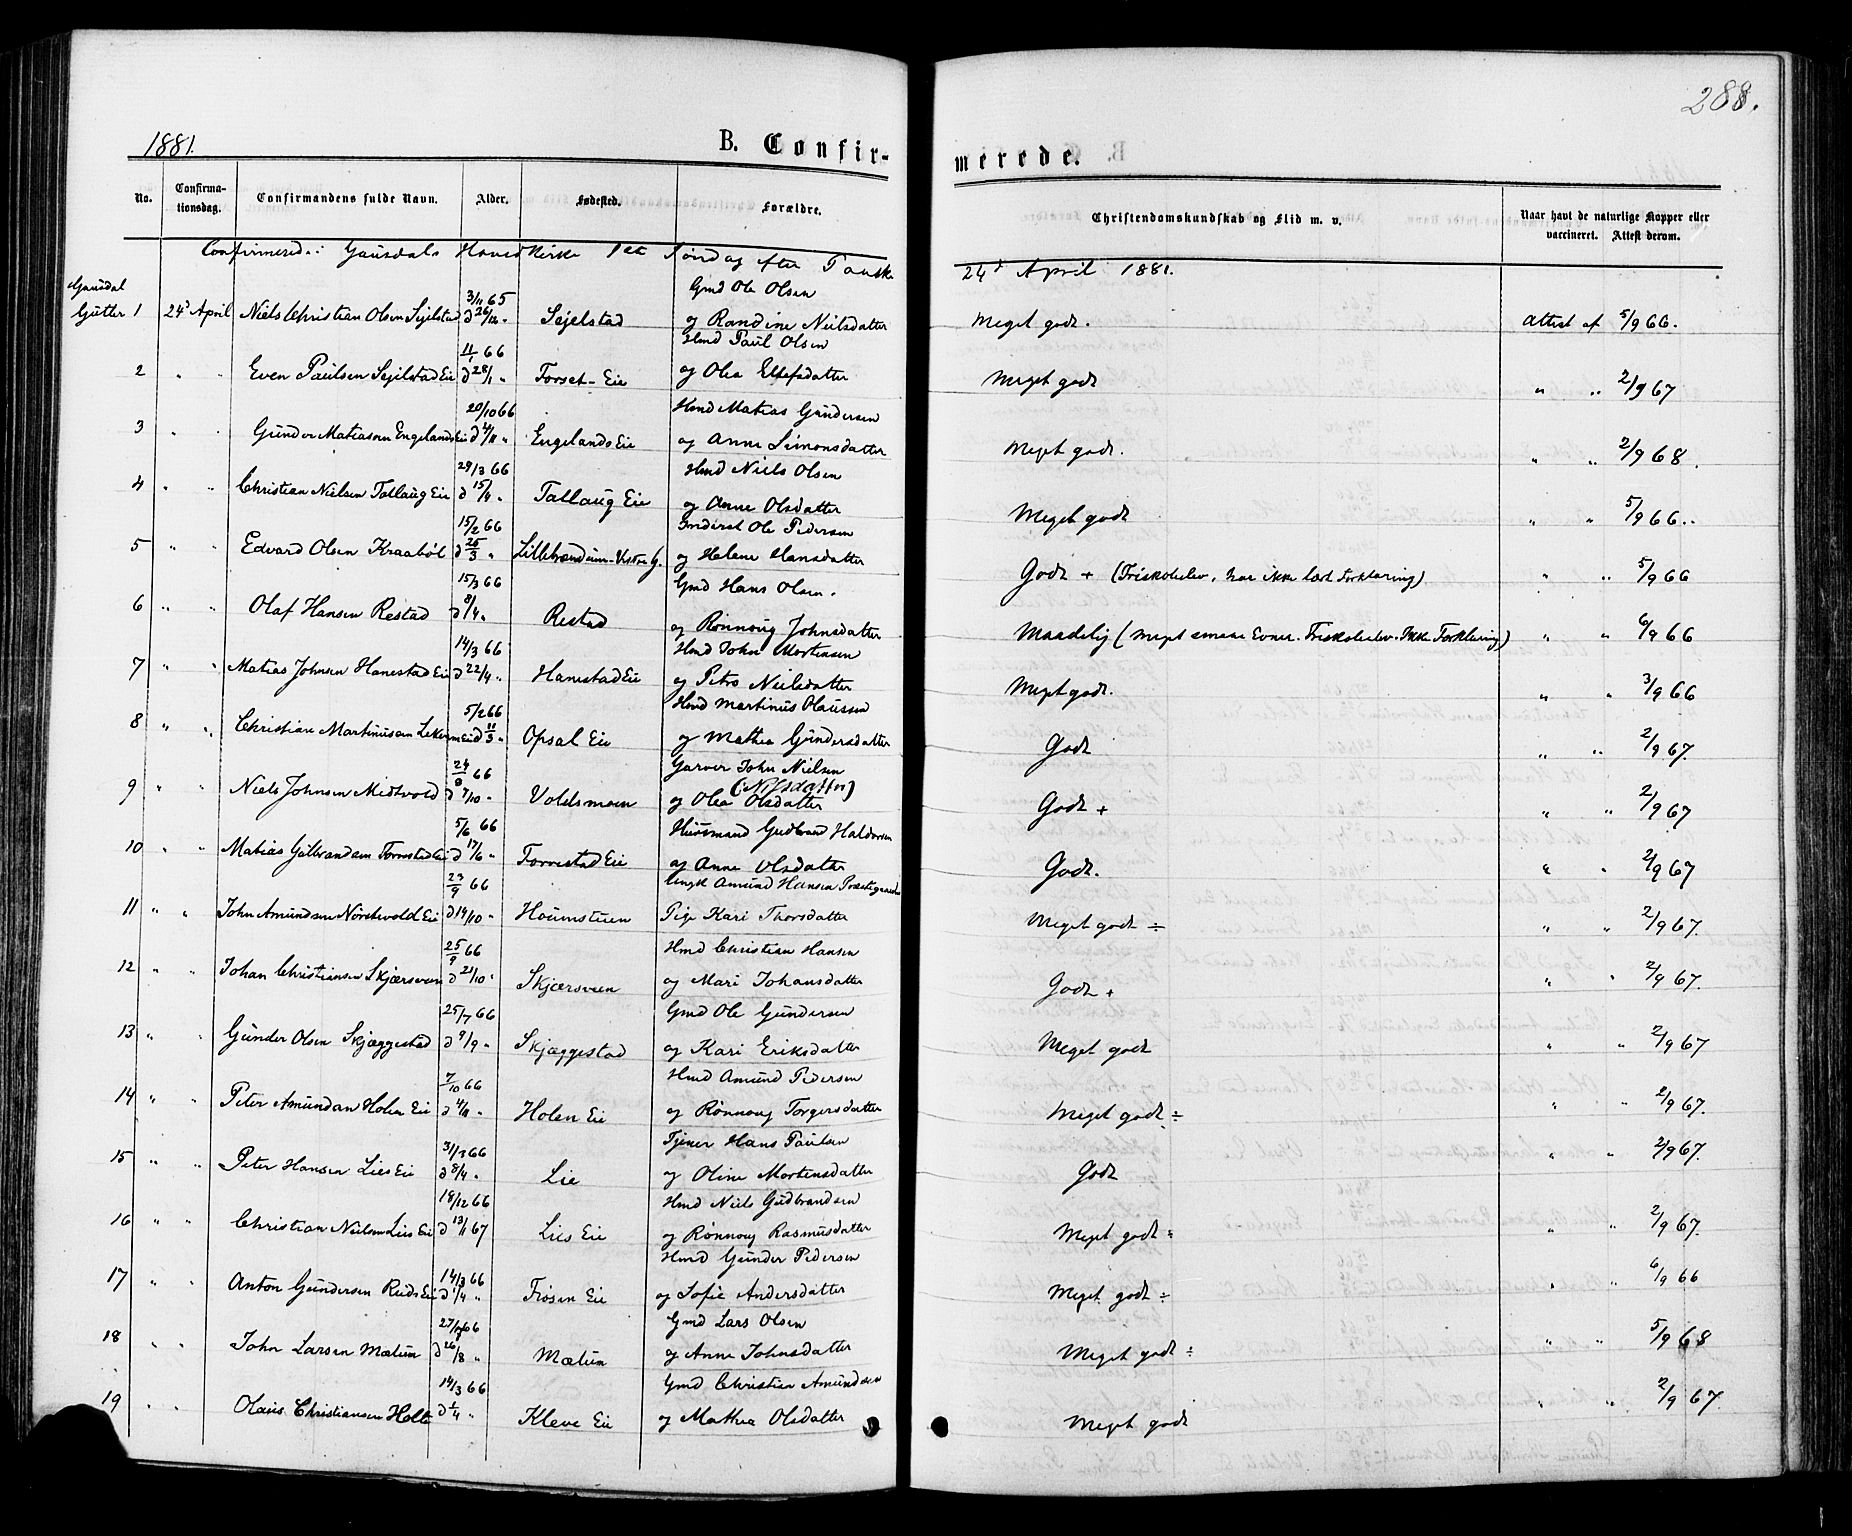 288.
1881.
B. Confir-
merede.
No.
Confirma-
tionsdag.
Confirmandens fulde Navn.
Alder.
Fødested.
Forældre.
Christendomskundskab og Flid m. v.
Naar havt de naturlige Kopper eller
vaccineret. Attest derom.
Confirmerede i Gausdals Hoved Kirke 1ste Søndag efter Paaske
24d April 1881.
Gausdal
3/11 65 Gmd Ole Olsen
Gutter 1 24d April Niels Christian Olsen Sejelstad d 26/12 " Sejelstad og Randine Nielsdatter Meget godt. Attest af 5/9 66.
4/1 66 Hmd Paul Olsen
2 " " Even Paulsen Sejelstad Eie d 28/1 " Forset-Eie og Olea Ellefsdatter Meget godt " " 2/9 67
20/10 66 Hmd Matias Gundersen
3 " " Gunder Matiasen Engelands Eie d 4/11 " Engelands Eie og Anne Simonsdatter Meget godt. " " 2/9 68.
29/3 66 Hmd Niels Olsen
4 " " Christian Nielsen Tollaug Eie d 15/4 " Tallaug Eie og Anne Olsdatter Meget godt " " 5/9 66.
15/2 66 Inderst Ole Pedersen
5 " " Edvard Olsen Kraabøl d 25/3 " og Helene Hansdatter Godt + (Friskoleelev, har ikke læst Forklaring) " " 5/9 66
15/3 66 Gmd Hans Olsen.
6 " " Olaf Hansen Restad d 8/4 " Restad og Rønnoug Johnsdatter Maadelig (meget smaa Evner. Friskoleelev. Ikke Forklaring) " " 6/9 66
14/3 66 Hmd John Mortensen
7 " " Matias Johnsen Hanestad Eie d 22/4 " Hanestad Eie og Petro Nielsdatter Meget godt. " " 3/9 66
5/2 66 Hmd Martinus Olaussen
8 " " Christian Martinusen d 11/3 " Opsal Eie og Mathea Gundersdatter Godt " " 2/9 67.
24/9 66 Garver John Nielsen
(Nilsdatter)
9 " " Niels Johnsen Midtvold d 7/10 " Voldsmoen og Olea Olsdatter Godt + " " 2/9 67
5/6 66 Huusmand Gudbrand Haldorsen
10 " " Matias Gulbrandsen d 17/6 " Forrestad Eie og Anne Olsdatter Godt. " " 2/9 67
23/9 66 Ungk Amund Hansen
11 " " John Amundsen Nordtvold Eie d 14/10 " Houmstuen Pige Kari Thorsdatter Meget godt ÷ " " 2/9 67.
25/9 66 Hmd Christian Hansen
12 " " Johan Christiansen Skjærsveen d 21/10 " Skjærsveen og Mari Johansdatter Godt + " " 2/9 67.
25/7 66 Gmd Ole Gundersen
13 " " Gunder Olsen Skjæggestad d 9/9 " Skjæggestad og Kari Eriksdatter Meget godt " " 2/9 67
7/10 66 Hmd Amund Pedersen
14 " " Peter Amundsen Holen Eie d 4/11 " Holen Eie og Rønnoug Torgersdatter Meget godt ÷ " " 2/9 67.
31/3 66 Tjener Hans Paulsen
15 " " Peter Hansen Lies Eie d 8/4 " Lie og Oline Mortensdatter Godt " " 2/9 67.
18/12 66 Hmd Niels Gudbrandsen
16 " " Christian Nielsen Lies Eie d 13/1 67 Lies Eie og Rønnoug Rasmusdatter Meget godt ÷ " " 2/9 67.
14/3 66 Hmd Gunder Pedersen
17 " " Anton Gundersen Ruds Eie d 1/4 " Frøsen Eie og Sofie Andersdatter Meget godt ÷ " " 6/9 66
27/7 66 Gmd Lars Olsen
18 " " John Larsen Mælum d 26/8 " Mælum og Anne Johnsdatter Meget godt ÷ " " 5/9 68
14/3 66 Gmd Christian Amundsen
19 " " Olaus Christiansen Holte d 2/4 " Kleve Eie og Mathea Olsdatter Meget godt " " 2/9 67.